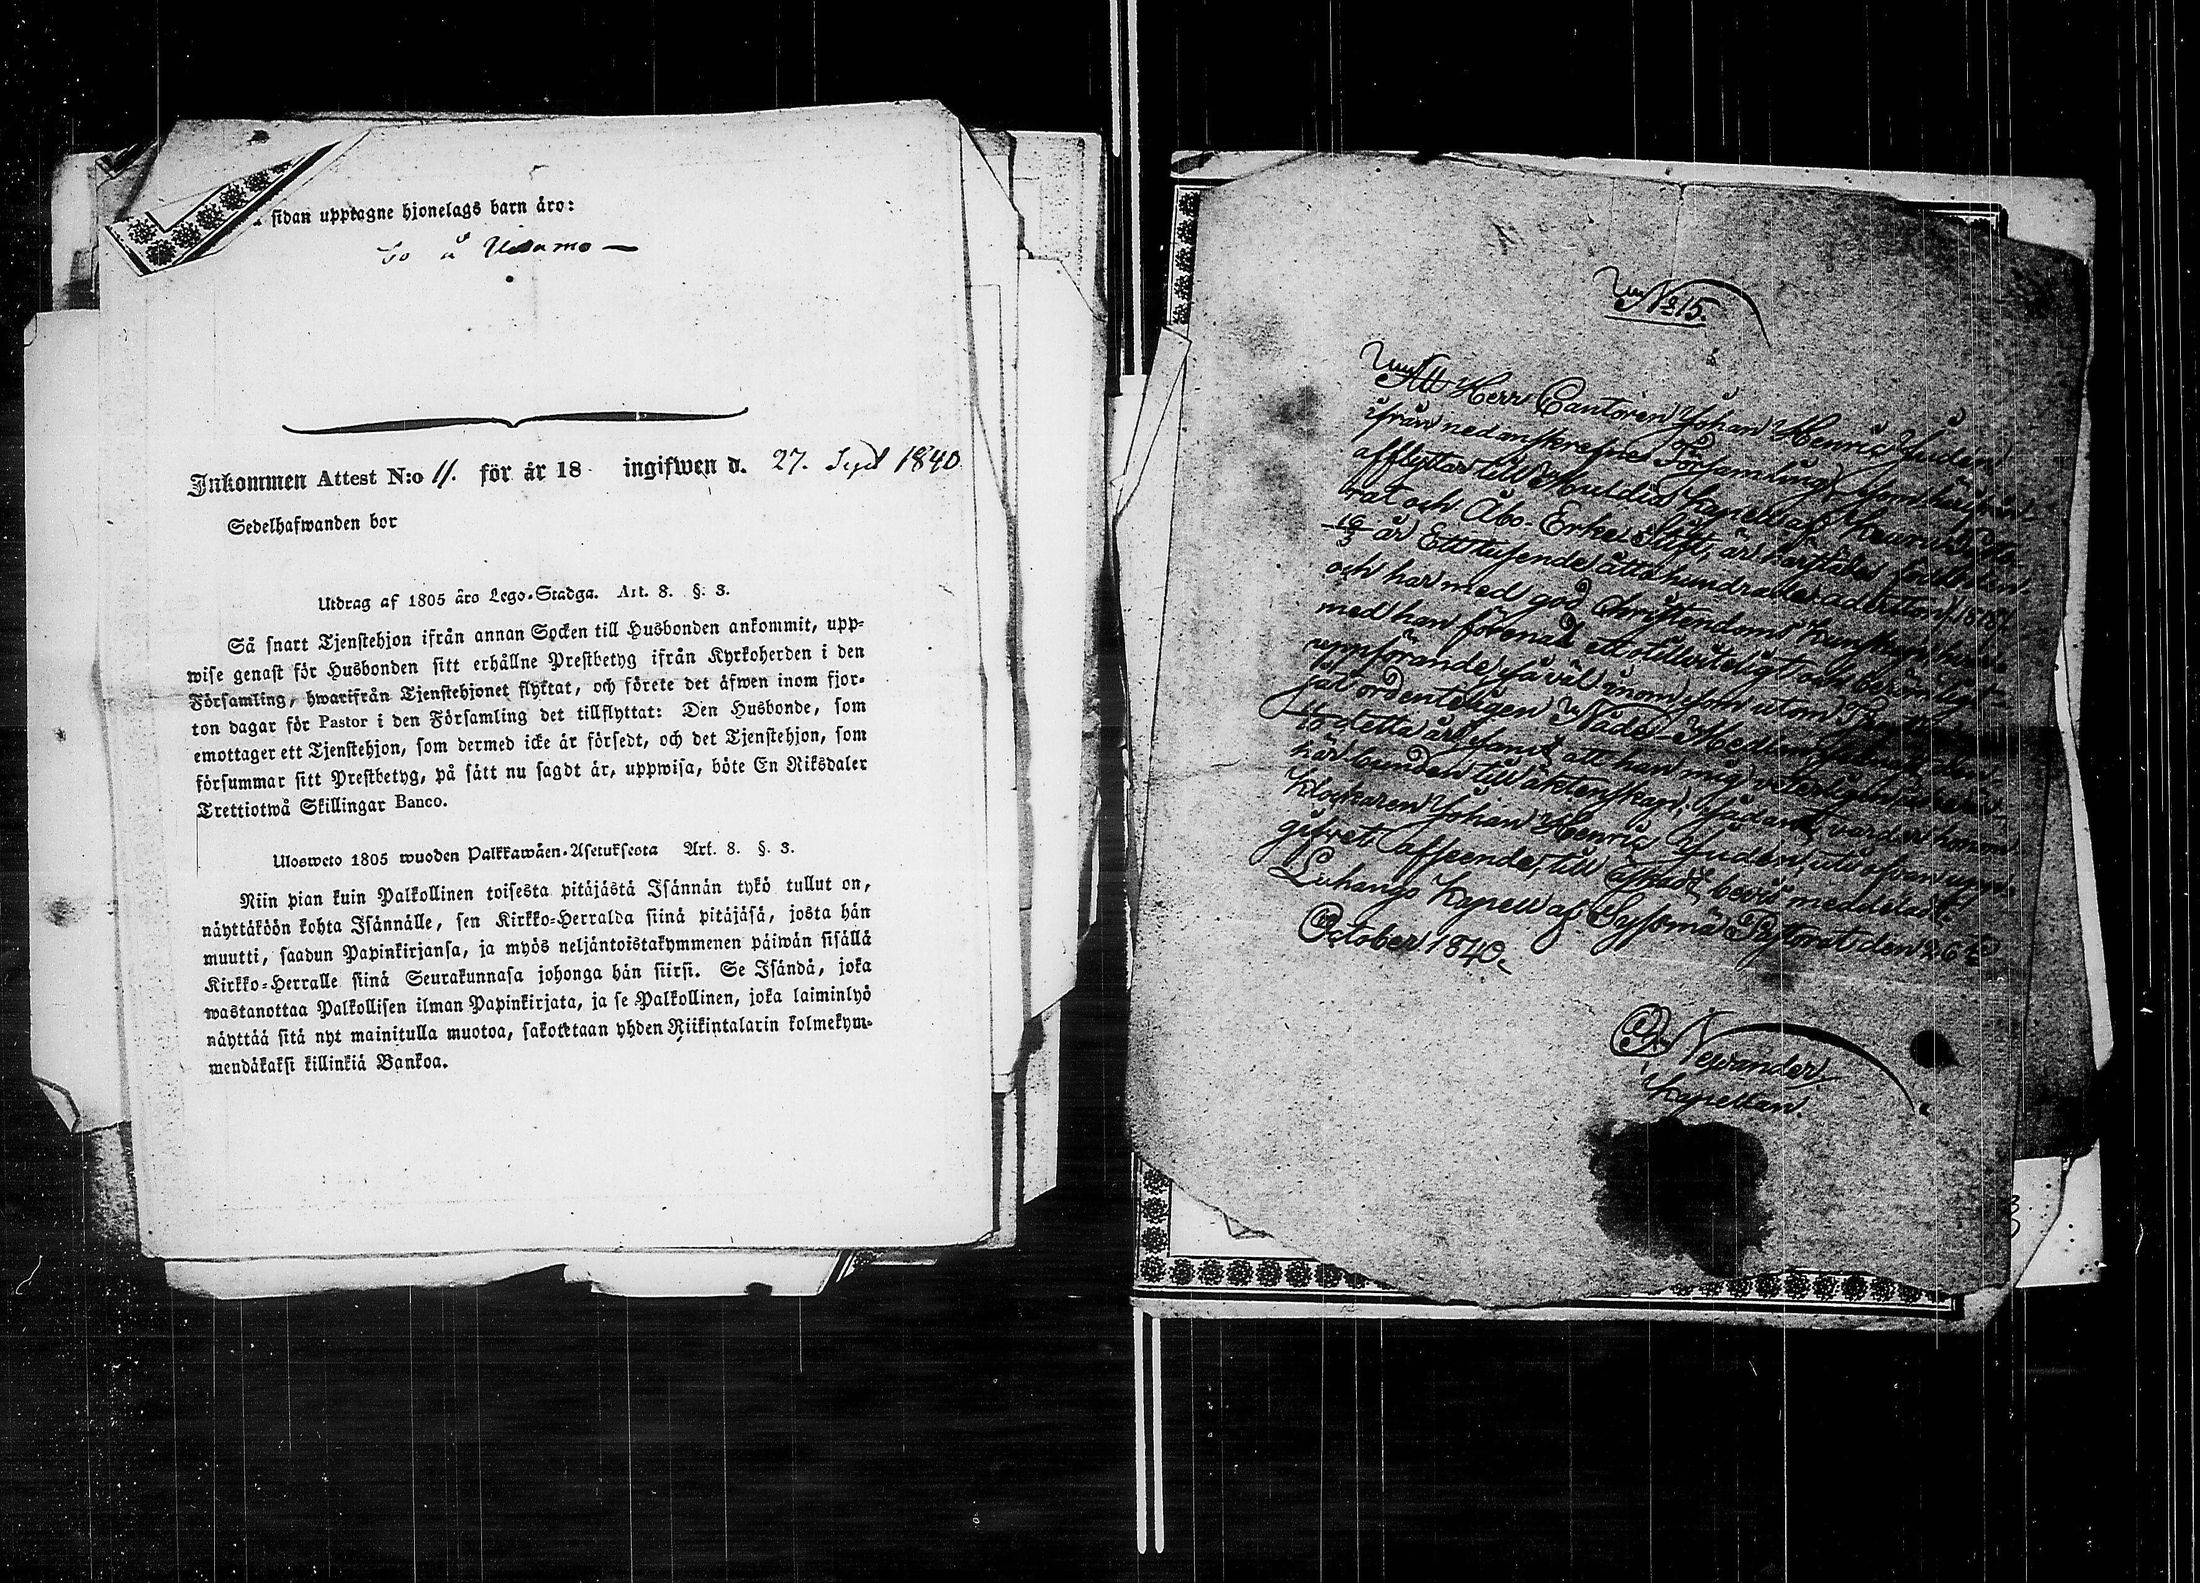 sidan upptagne hjonelags barn äro:
Inkommen Attest N:o 11. för år 18 ingifwen d. 27. Sept 1840
Sedelhafwanden bor
Utdrag af 1805 åro Lego-Stadga. Art. 8. §. 3.
Så snart Tjenstehjon ifrån annan Socken till Husbonden ankommit, upp-
wise genast för Husbonden sitt erhållne Prestbetyg ifrån Kyrkoherden i den
Församling, hwarifrån Tjenstehjonet flyttat, och förete det äfwen inom fjor-
ton dagar för Pastor i den Församling det tillflyttat: Den Husbonde, som
emottager ett Tjenstehjon, som dermed icke är försedt, och det Tjenstehjon, som
försummar sitt Prestbetyg, på sätt nu sagdt är, uppwisa, böte En Riksdaler
Trettiotwå Skillingar Banco.
Ulosweto 1805 wuoden Palkkawäen-Asetuksesta Art. 8. §. 3.
Niin pian kuin Palkollinen toisesta pitäjästä Isännän tykö tullut on,
näyttäköön kohta Isännälle, sen Kirkko-Herralda siinä pitäjäsä, josta hän
muutti, saadun Papinkirjansa, ja myös neljäntoistakymmenen päiwän sisällä
Kirkko-Herralle siinä Seurakunnasa johonga hän siirsi. Se Isändä, joka
wastanottaa Palkollisen ilman Papinkirjata, ja se Palkollinen, joka laiminlyö
näyttää sitä nyt mainitulla muotoa, sakotetaan yhden Riikintalarin kolmekym-
mendäkaksi killinkiä Bankoa.
No 15.
Att Herr Cantoren Johan Henric Judén
ifrån nedanskrefne Församling, som härifrån
afflyttar till Multia Kapell af Keuru Pasto-
rat och Åbo Erke Stift, är härstädes född den
19/3 år Ett tusende åtta hundrade aderton, 1818
och har med god Christendoms kunskap, hvar-
med han förenat ett otillviteligt och berömligt
uppförande, såväl inom som utom Tjensten,
jäl ordenteligen Nåde Medlen,
detta år, samt att han mig veterligen icke är
här bunden till äktenskap; sådant varder honom
Klockaren Johan Henric Judén, uti ofvan upp-
gifvet afseende, till äskadt bevis meddeladt.
Luhango Kapell af Sysmä Pastorat den 26te
October 1840.
Newander
Kapellan.